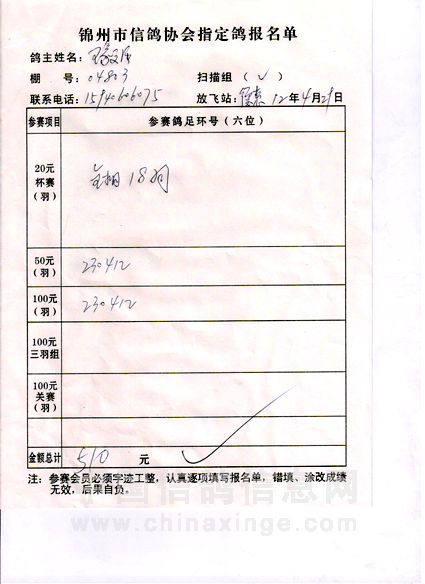 锦州市信鸽协会指定鸽报名单
鸽主姓名：
棚 号：04803 扫描组（✓）
联系电话：1594066075 放飞站： 12年4月29日
参赛项目 参赛鸽足环号（六位）
20元
杯赛
（羽）
18羽
50元
（羽）
230412
100元
（羽）
230412
100元
三羽组
100元
关赛
（羽）
金额总计 510 元
注：参赛会员必须字迹工整，认真逐项填写报名单，错填、涂改成绩
无效，后果自负。
中国信鸽信息网
www.chinaxinge.com